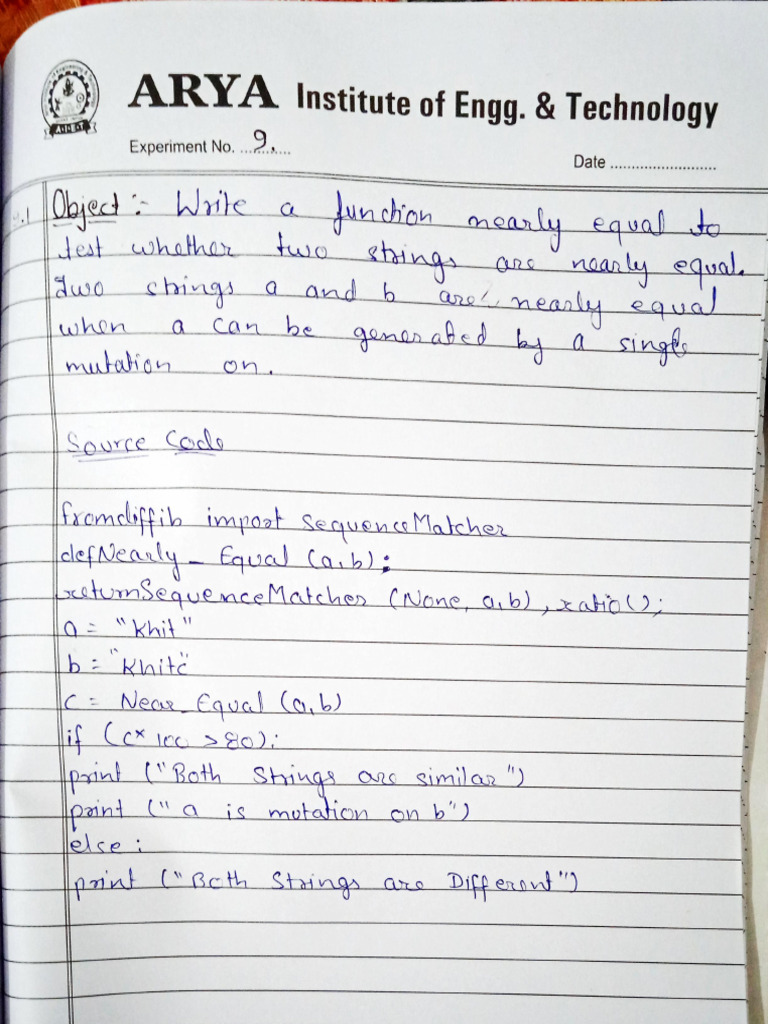 ARYA Institute of Engg. & Technology
Experiment No. ...9....
Date ..........................
Object :- Write a function nearly equal to
test whether two strings are nearly equal.
Two strings a and b are nearly equal
when a can be generated by a single
mutation on.
Source Code
fromdiffib import SequenceMatcher
defNearly_Equal (a,b);
returnSequenceMatcher (None, a,b), ratio();
a = "Khit"
b = "Khitc"
c = Near_Equal (a,b)
if (c* 100 >80);
print ("Both Strings are similar")
print (" a is mutation on b")
else :
print ("Both Strings are Different")